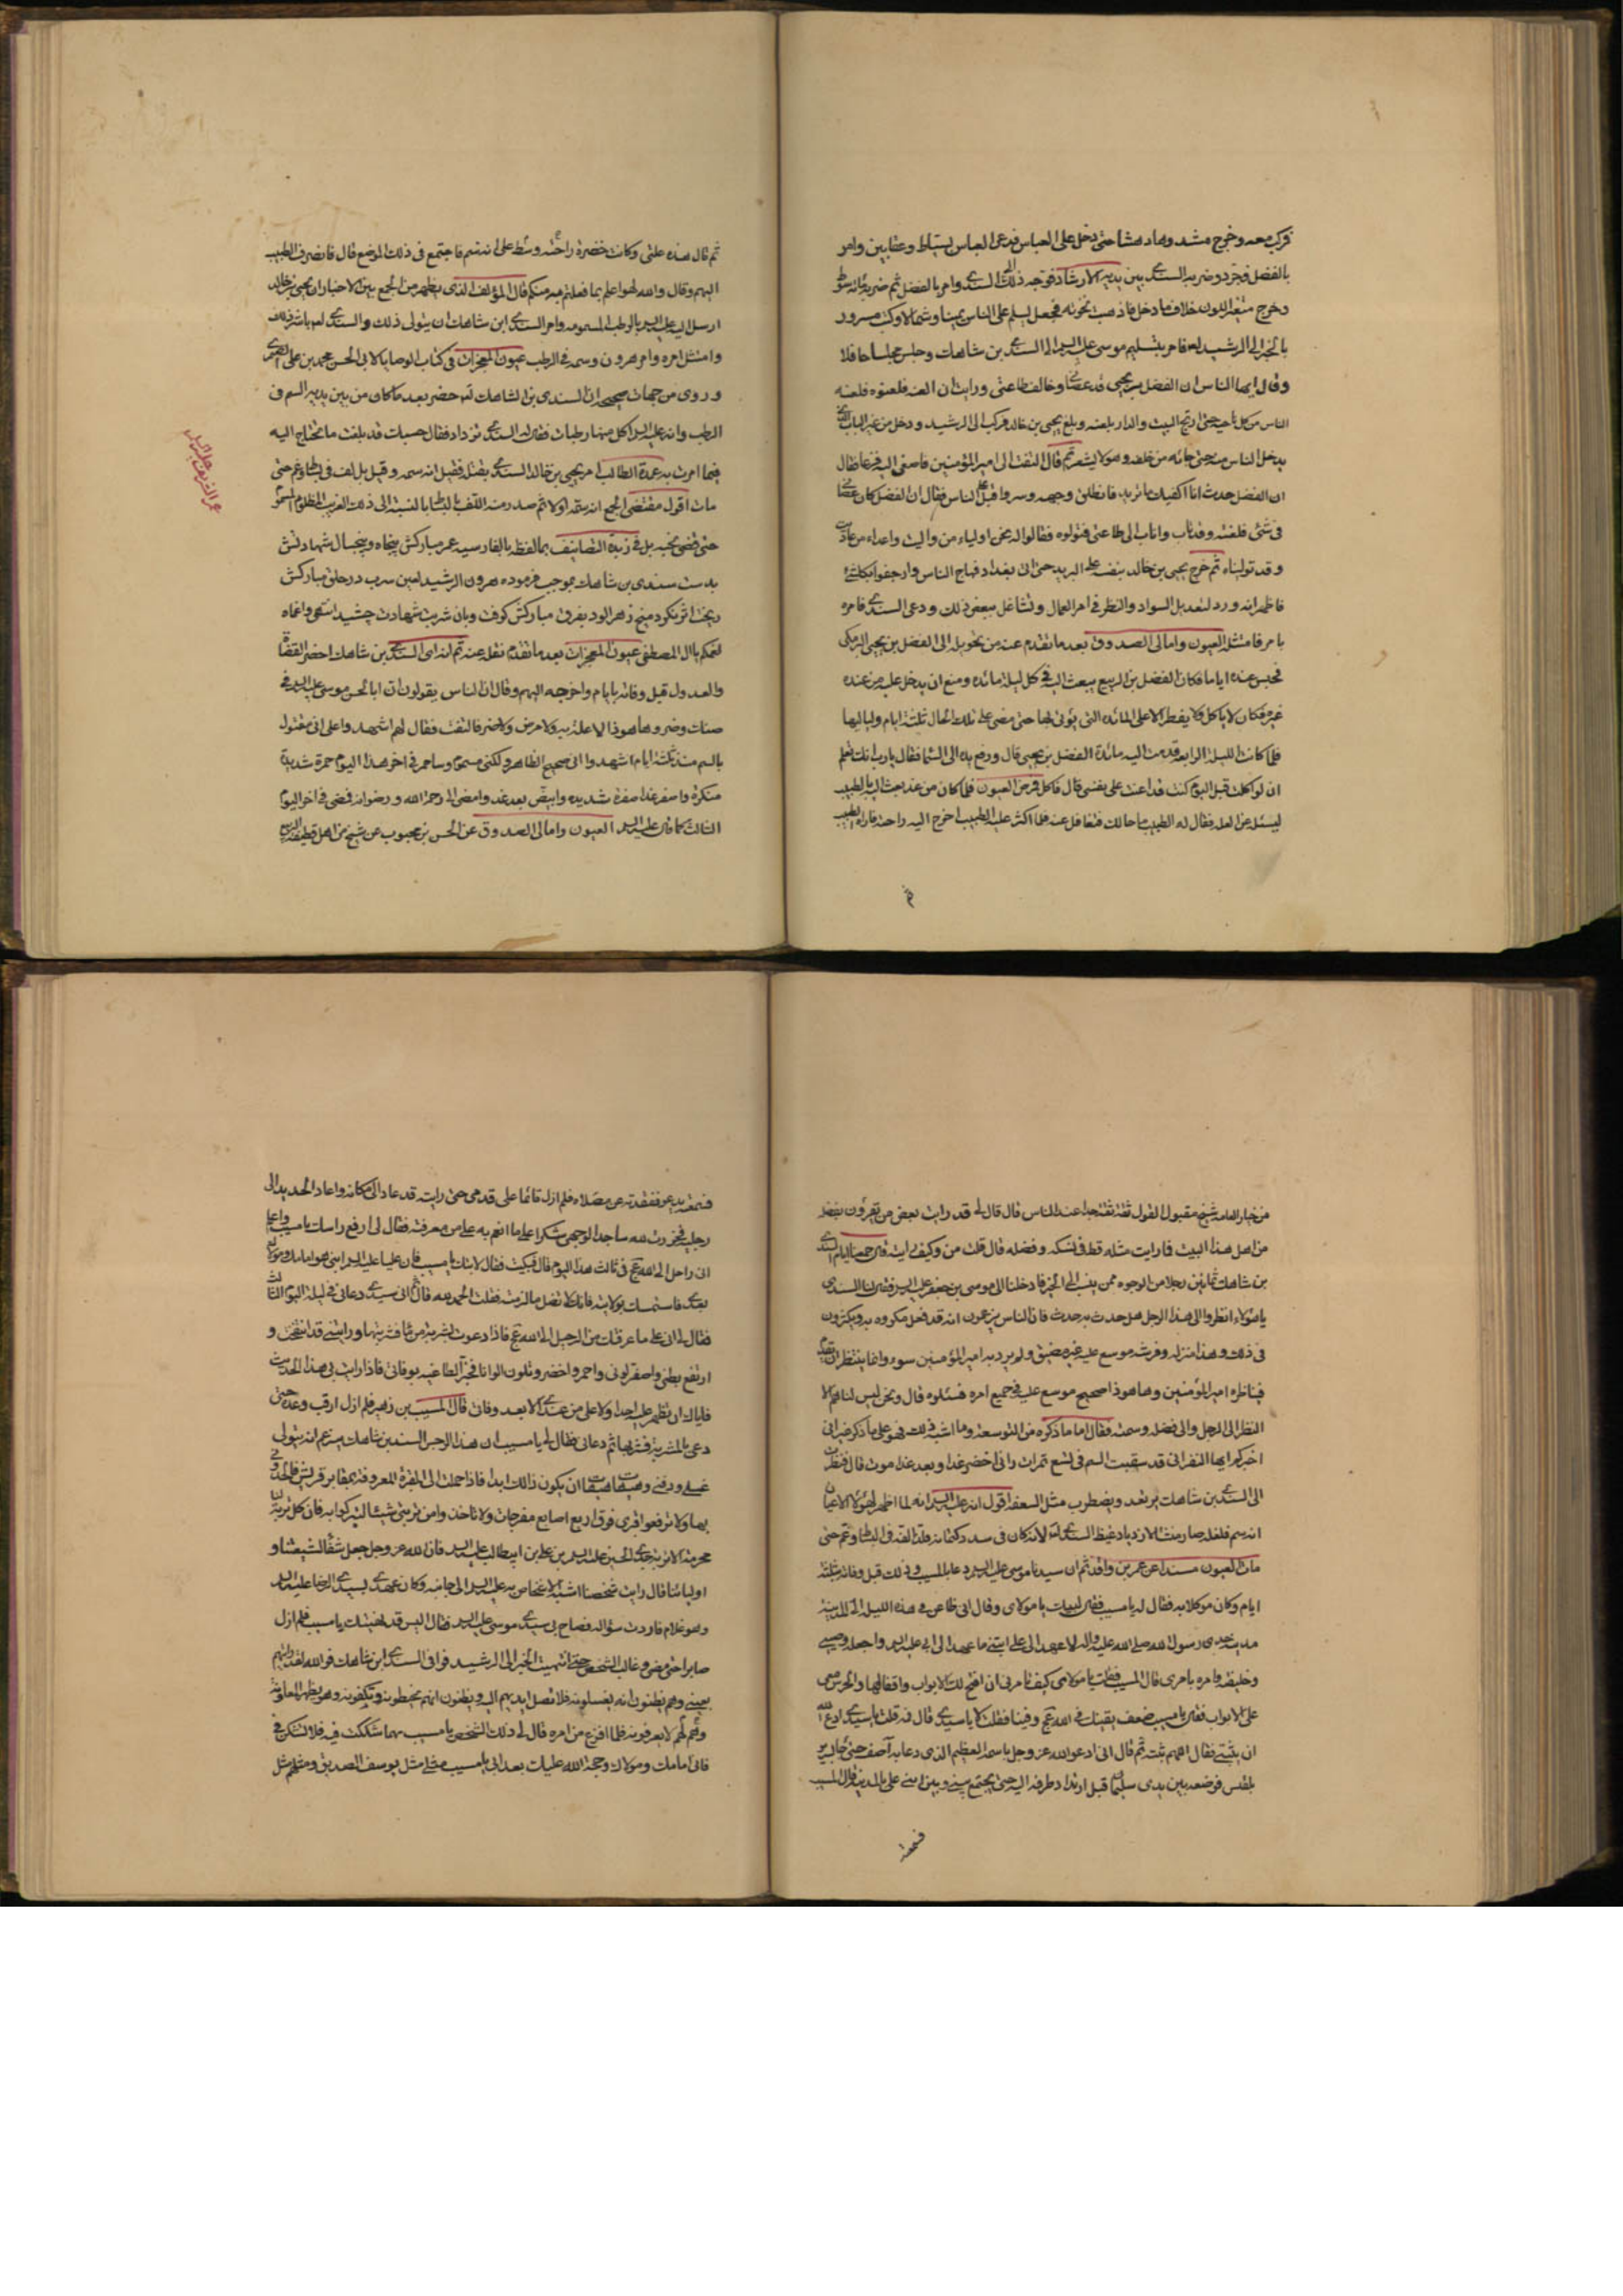 فركب معه وخرج مشدوها دهشا حتى دخل على العباس فدعى العباس بسياط وعقابين وامر
بالفضل فجرد وضربه السندي بين يديه الارشاد فوجه ذلك الى السندي وامر بالفضل ثم ضربه مائة سوط
وخرج متغير اللون خلاف ما دخل فاذهبت نخوته فجعل يسلم على الناس يمينا وشمالا وكتب مسرور
بالخبر الى الرشيد فامر بتسليم موسى عليه السلام الى السندي بن شاهك وجلس مجلسا حافلا
وقال ايها الناس ان الفضل بن يحيى قد عصاني وخالف طاعتي ورايت ان العنه فالعنوه فلعنه
الناس من كل ناحية حتى ارتج البيت والدار بلعنه وبلغ يحيى بن خالد فركب الى الرشيد ودخل من غير الباب الذي
يدخل الناس منه حتى جائه من خلفه وهو لا يشعر ثم قال التفت الى امير المؤمنين فاصغى اليه فزعا فقال
ان الفضل حدث انا اكفيك ما تريد فانطلق وجهه وسر واقبل على الناس فقال ان الفضل كان عصاني
في شئ فلعنته وقد تاب واناب الى طاعتي فتولوه فقالوا له نحن اولياء من واليت واعداء من عاديت
وقد توليناه ثم خرج يحيى بن خالد بنفسه على البريد حتى اتى بغداد فهاج الناس وارجفوا بكل شئ
فاظهر انه ورد لتعديل السواد والنظر في امر العمال وتشاغل ببعض ذلك ودعى السندي فامره
بامره فامتثله العيون وامالى الصدوق بعد ما تقدم عنه من تحويله الى الفضل بن يحيى البرمكي
فحبس عنده اياما فكان الفضل بن الربيع يبعث اليه في كل ليلة مائدة ومنع ان يدخل عليه من عنده
غيره فكان لا ياكل ولا يفطر الا على المائدة التي يؤتى بها حتى مضى على تلك الحال ثلثة ايام ولياليها
فلما كانت الليلة الرابعة قدمت اليه مائدة الفضل بن يحيى قال ورفع يده الى السماء فقال يا رب انك تعلم
ان لو اكلت قبل اليوم كنت قد اعنت على نفسي قال فاكل فمرض العيون فلما كان من غد بعث اليه بالطبيب
ليسئله عن العلة فقال له الطبيب ما حالك فتغافل عنه فلما اكثر عليه الطبيب اخرج اليه راحته فاراها الطبيب
ثم
ثم قال هذه علتي وكانت خضرة راحته وسط على انه سم فاجتمع في ذلك الموضع قال فانصرف الطبيب
اليهم وقال والله لهو اعلم بما فعلتم به منكم قال المؤلف الذي يظهر من الجمع بين الاخبار ان يحيى بن خالد
ارسل اليه عليه السلام بالرطب المسمومة وامر السندي ابن شاهك ان يتولى ذلك والسندي باشر ذلك
وامتثل امره وامر هرون وسمه في الرطب عيون المعجزات في كتاب الوصايا لابى الحسن محمد بن على
وروى من جهات صحيحة ان السندي بن الشاهك حضر بعد ما كان من بين يديه السم في
الرطب وانه عليه السلام اكل منها رطبات فقال له السندي تزداد فقال حسبك قد بلغت ما تحتاج اليه
فيما امرت به عمدة الطالب امر يحيى بن خالد السندي بقتله فقيل انه سمه وقيل بل لف في بساط وغم حتى
مات اقول مقتضى الجمع انه سمه اولا ثم صدر منه اللف بالبساط بالنسبة الى ذلك الغريب المظلوم
حتى قضى نحبه بل في زبدة التصانيف بما لفظه بالفارسيه عمر مباركش پنجاه وپنجسال شهادتش
بدست سندى بن شاهك بموجب فرموده هرون الرشيد لعين سرب در حلق مباركش
ريخت اثر نكرد ميخ زهر الود بفرق مباركش كوفت وبان شربت شهادت چشيد انتهى واغماه
لغمكم يا ال المصطفى عيون المعجزات بعد ما تقدم نقله عنه ثم انه اى السندي بن شاهك احضر القضاة
والعدول قبل وفاته بايام واخرجه اليهم وقال ان الناس يقولون ان ابا الحسن موسى عليه السلام في
ضنك وضر وها هو ذا لا علة به ولا مرض ولا ضر فالتفت فقال لهم اشهدوا على اني مقتول
بالسم منذ ثلثة ايام اشهدوا اني صحيح الظاهر ولكني مسموم وساحمر في اخر هذا اليوم حمرة شديدة
منكرة واصفر غدا صفرة شديدة وابيض بعد غد وامضى الى رحمة الله ورضوانه فمضى في اخر اليوم
الثالث كما قال عليه السلام العيون وامالى الصدوق عن الحسن بن محبوب عن شيخ من اهل قطيعة الربيع
من خيار العامة شيخ مقبول القول ثقة ثقة جدا عند الناس قال قال لي قد رايت بعض من تقرون بفضله
من اهل هذا البيت فما رايت مثله قط في نسكه وفضله قال قلت من وكيف رايته قال جمعنا ايام السندي
بن شاهك ثمانين رجلا من الوجوه ممن ينسب الى الخير فادخلنا الى موسى بن جعفر عليه السلام فقال لنا السندي
يا هؤلاء انظروا الى هذا الرجل هل حدث به حدث فان الناس يزعمون انه قد فعل مكروه به ويكثرون
في ذلك وهذا منزله وفرشه موسع عليه غير مضيق ولم يرد به امير المؤمنين سوء وانما ينتظر ان يقدم
فيناظره امير المؤمنين وها هو ذا صحيح موسع عليه في جميع امره فسئلوه قال ونحن ليس لنا هم الا
النظر الى الرجل والى فضله وسمته فقال اما ما ذكره من التوسعة وما اشبه ذلك فهو على ما ذكر غير انى
اخبركم ايها النفر اني قد سقيت السم في تسع تمرات واني اخضر غدا وبعد غد اموت قال فنظرت
الى السندي بن شاهك يرتعد ويضطرب مثل السعفة اقول انه عليه السلام انه لما اظهر لهؤلاء الاعيان
انه سم فلعله صار منشا لازدياد غيظ السندي لانه كان في صدد كتمانه فلذا لفه في البساط وغم حتى
مات العيون مسندا عن عمر بن واقد ثم ان سيدنا موسى عليه السلام دعا بالمسيب وذلك قبل وفاته بثلثة
ايام وكان موكلا به فقال له يا مسيب فقال لبيك يا مولاى وقال انى ظاعن في هذه الليلة الى المدينة
مدينة جدى رسول الله صلى الله عليه واله لاعهد الى على ابنى ما عهده الى ابى عليه السلام واجعله وصيي
وخليفتي وامره بامرى قال المسيب فقلت يا مولاى كيف تامرنى ان افتح لك الابواب واقفالها والحرس معى
على الابواب فقال يا مسيب ضعف يقينك في الله عج وفينا فقلت لا يا سيدي قال فمه قلت يا سيدي ادع الله
ان يثبتني فقال اللهم ثبته ثم قال انى ادعو الله عز وجل باسمه العظيم الذى دعا به آصف حتى جاء بسرير
بلقيس فوضعه بين يدى سليمان قبل ارتداد طرفه اليه حتى يجمع بيني وبين ابني على بالمدينة قال المسيب
فسمعته
فسمعته يدعو ففقدته عن مصلاه فلم ازل قائما على قدمى حتى رايته قد عاد الى مكانه واعاد الحديد الى
رجليه فخررت لله ساجدا لوجهى شكرا على ما انعم به على من معرفته فقال لى ارفع راسك يا مسيب واعلم
انى راحل الى الله عج في ثالث هذا اليوم قال فبكيت فقال لا تبك يا مسيب فان عليا عليه السلام ابنى هو امامك ومولاك
بعدي فاستمسك بولايته فانك لا تضل ما لزمته فقلت الحمد لله قال ثم ان سيدي دعانى في ليلة اليوم الثالث
فقال لي انى على ما عرفتك من الرحيل الى الله عج فاذا دعوت بشربة من ماء فشربتها ورايتني قد انتفخت و
ارتفع بطنى واصفر لونى واحمر واخضر وتلون الوانا فخبر الطاغيه بوفاتى فاذا رايت بى هذا الحدث
فاياك ان تظهر عليه احدا ولا على من عندي الا بعد وفاتى قال المسيب بن زهير فلم ازل ارقب وعده حتى
دعى بالشربة فشربها ثم دعانى فقال لي يا مسيب ان هذا الرجس السندي بن شاهك سيزعم انه يتولى
غسلي ودفني وهيهات هيهات ان يكون ذلك ابدا فاذا حملت الى المقبرة المعروفة بمقابر قريش فالحدوني
بها ولا ترفعوا قبرى فوق اربع اصابع مفرجات ولا تاخذوا من تربتى شيئا لتتبركوا به فان كل تربة لنا
محرمة الا تربة جدي الحسين عليه السلام بن على بن ابيطالب عليه السلام فان الله عز وجل جعلها شفاء لشيعتنا و
اوليائنا قال رايت شخصا اشبه الاشخاص به عليه السلام الى جانبه وكان عهدي بسيدي الرضا عليه السلام
وهو غلام فاردت سؤاله فصاح بى سيدي موسى عليه السلام فقال اليس قد نهيتك يا مسيب فلم ازل
صابرا حتى مضى وغاب الشخص حتى انهيت الخبر الى الرشيد فوافى السندي ابن شاهك فو الله لقد رايتهم
بعيني وهم يظنون انه يغسلونه فلا تصل ايديهم اليه ويظنون انهم يحنطونه ويكفنونه وهو يظهر المعاونة
وهم لا يعرفونه فلما فرغ من امره قال لي ذلك الشخص يا مسيب مهما شككت فيه فلا تشكن في
فانى امامك ومولاك وحجة الله عليك بعد ابى يا مسيب مثلي مثل يوسف الصديق ومثلهم مثل